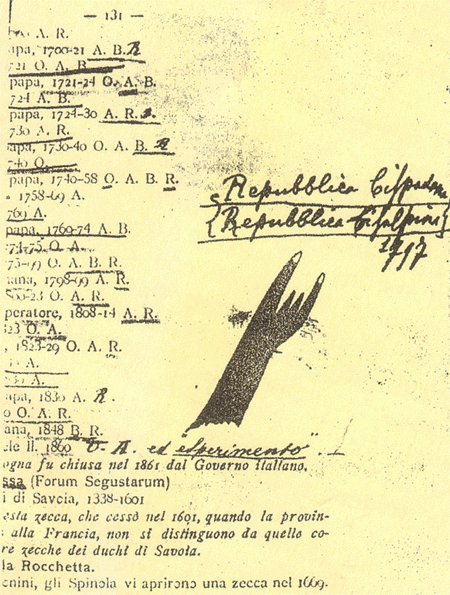 — 131 —
A. R.
apa, 1700-21 A. B. R
721 O. A. B.
papa, 1721-24 O. A. B.
724 A. B.
papa, 1724-30 A. R.
730 A. R.
apa, 1730-40 O. A. B. R
740 O.
papa, 1740-58 O. A. B. R.
1758-69 A.
769 A.
papa, 1769-74 A. B.
O. A.
75-99 O. A. B. R.
ana, 1798-99 A. R.
800-23 O. A. R.
peratore, 1808-14 A. R.
23 O. A.
, 1823-29 O. A. R.
A.
A.
apa, 1830 A. R.
o O. A. R.
ana, 1848 B. R.
ele II. 1860 O. A. ed "esperimento".
ogna fu chiusa nel 1861 dal Governo italiano.
ssa (Forum Segustarum)
i di Savoia, 1338-1601
esta zecca, che cessò nel 1601, quando la provin-
alla Francia, non si distinguono da quelle co-
re zecche dei duchi di Savoia.
la Rocchetta.
enini, gli Spinola vi aprirono una zecca nel 1669.
Repubblica Cispadana
Repubblica Cisalpina